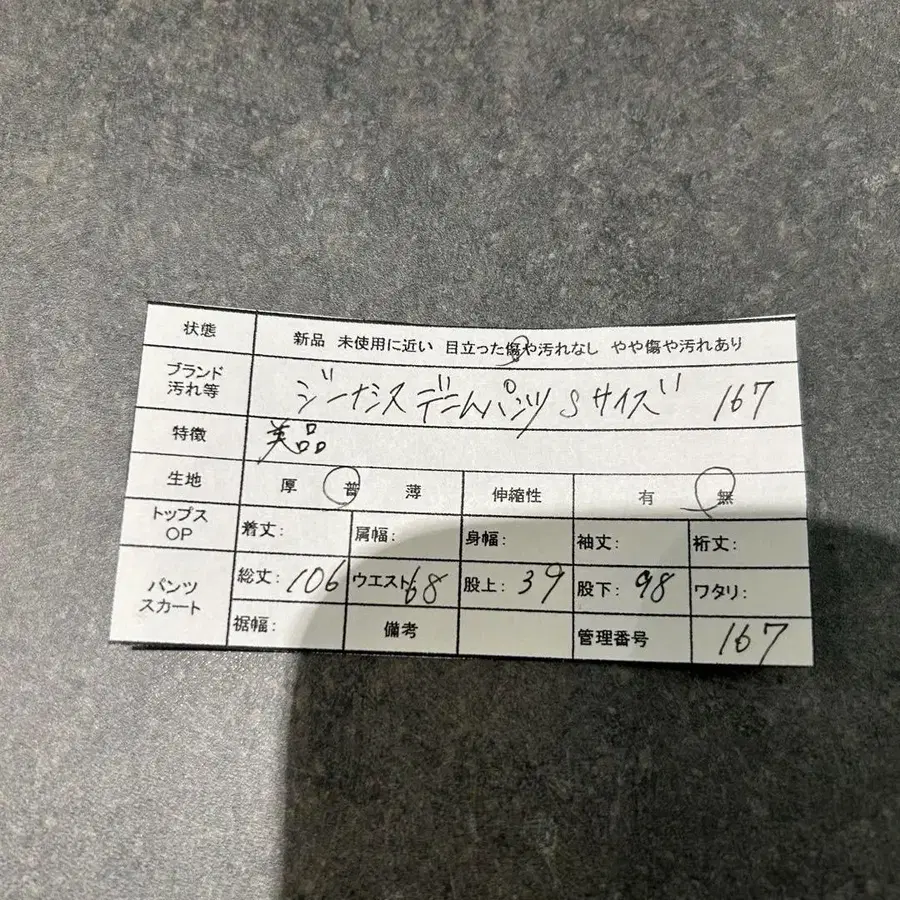 状態 新品 未使用に近い 目立った傷や汚れなし やや傷や汚れあり
ブランド 汚れ等 ジーナシス デニムパンツ Sサイズ 167
特徴 美品
生地 厚 普 薄 伸縮性 有 無
トップス OP 着丈: 肩幅: 身幅: 袖丈: 裄丈:
パンツ スカート 総丈: 106 ウエスト 68 股上: 39 股下: 98 ワタリ:
裾幅: 備考 管理番号 167